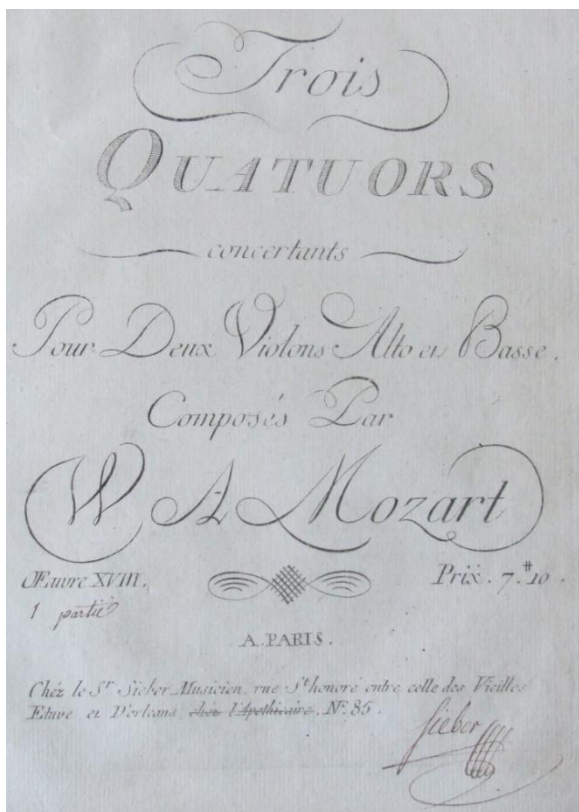 Trois
QUATUORS
concertants
Pour Deux Violons Alto et Basse.
Composés Par
W A Mozart
Œuvre XVIII.
Prix. 7.# 10.
1 partie
A. PARIS.
Chéz le Sr. Sieber Musicien, rue St. honoré entre celle des Vieilles
Etuve et D'orleans chéz l'Apothicaire, No. 85.
Sieber